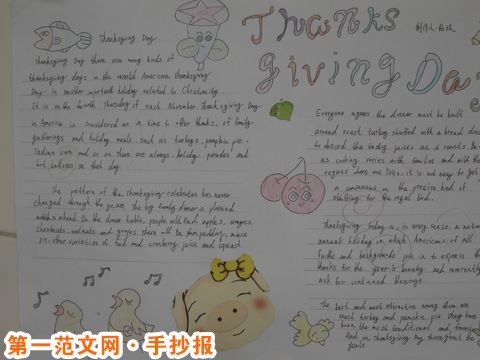 Thanks
制作人:
Giving Day
Thanksgiving Day
Thanksgiving Day there are many kinds of
thanksgiving days in the world. American Thanksgiving
Day is another important holiday related to Christianity.
It is on the fourth Thursday of each November. Thanksgiving Day
in America is considered as a time to offer thanks, of family
gatherings and holiday meals. such as turkeys, pumpkin pie,
Indian corn and so on. There are always holiday parades and
hot balloons on that day.
The pattern of the Thanksgiving celebration has never
changed through the years. The big family dinner is planned
months ahead. On the dinner table, people will find apples, oranges,
chestnuts, walnuts and grapes. there will be plum pudding, mince
pie, other varieties of food and cranberry juice and squash.
Everyone agrees the dinner must be built
around roast turkey stuffed with a bread dress
to absorb the tasty juices as it roasts. Bu
as cooking varies with families and with the
regions where one lives, it is not easy to get
a consensus on the precise kind of
stuffing for the royal bird.
Thanksgiving today is, in every sense, a nation
annual holiday on which Americans of all
faiths and backgrounds join in to express the
thanks for the year's bounty and reverently
ask for continued blessings.
The best and most attractive among them are
roast turkey and pumpkin pie. they have
been the most traditional and favorite
food on Thanksgiving Day throughout the
第一范文网·手抄报